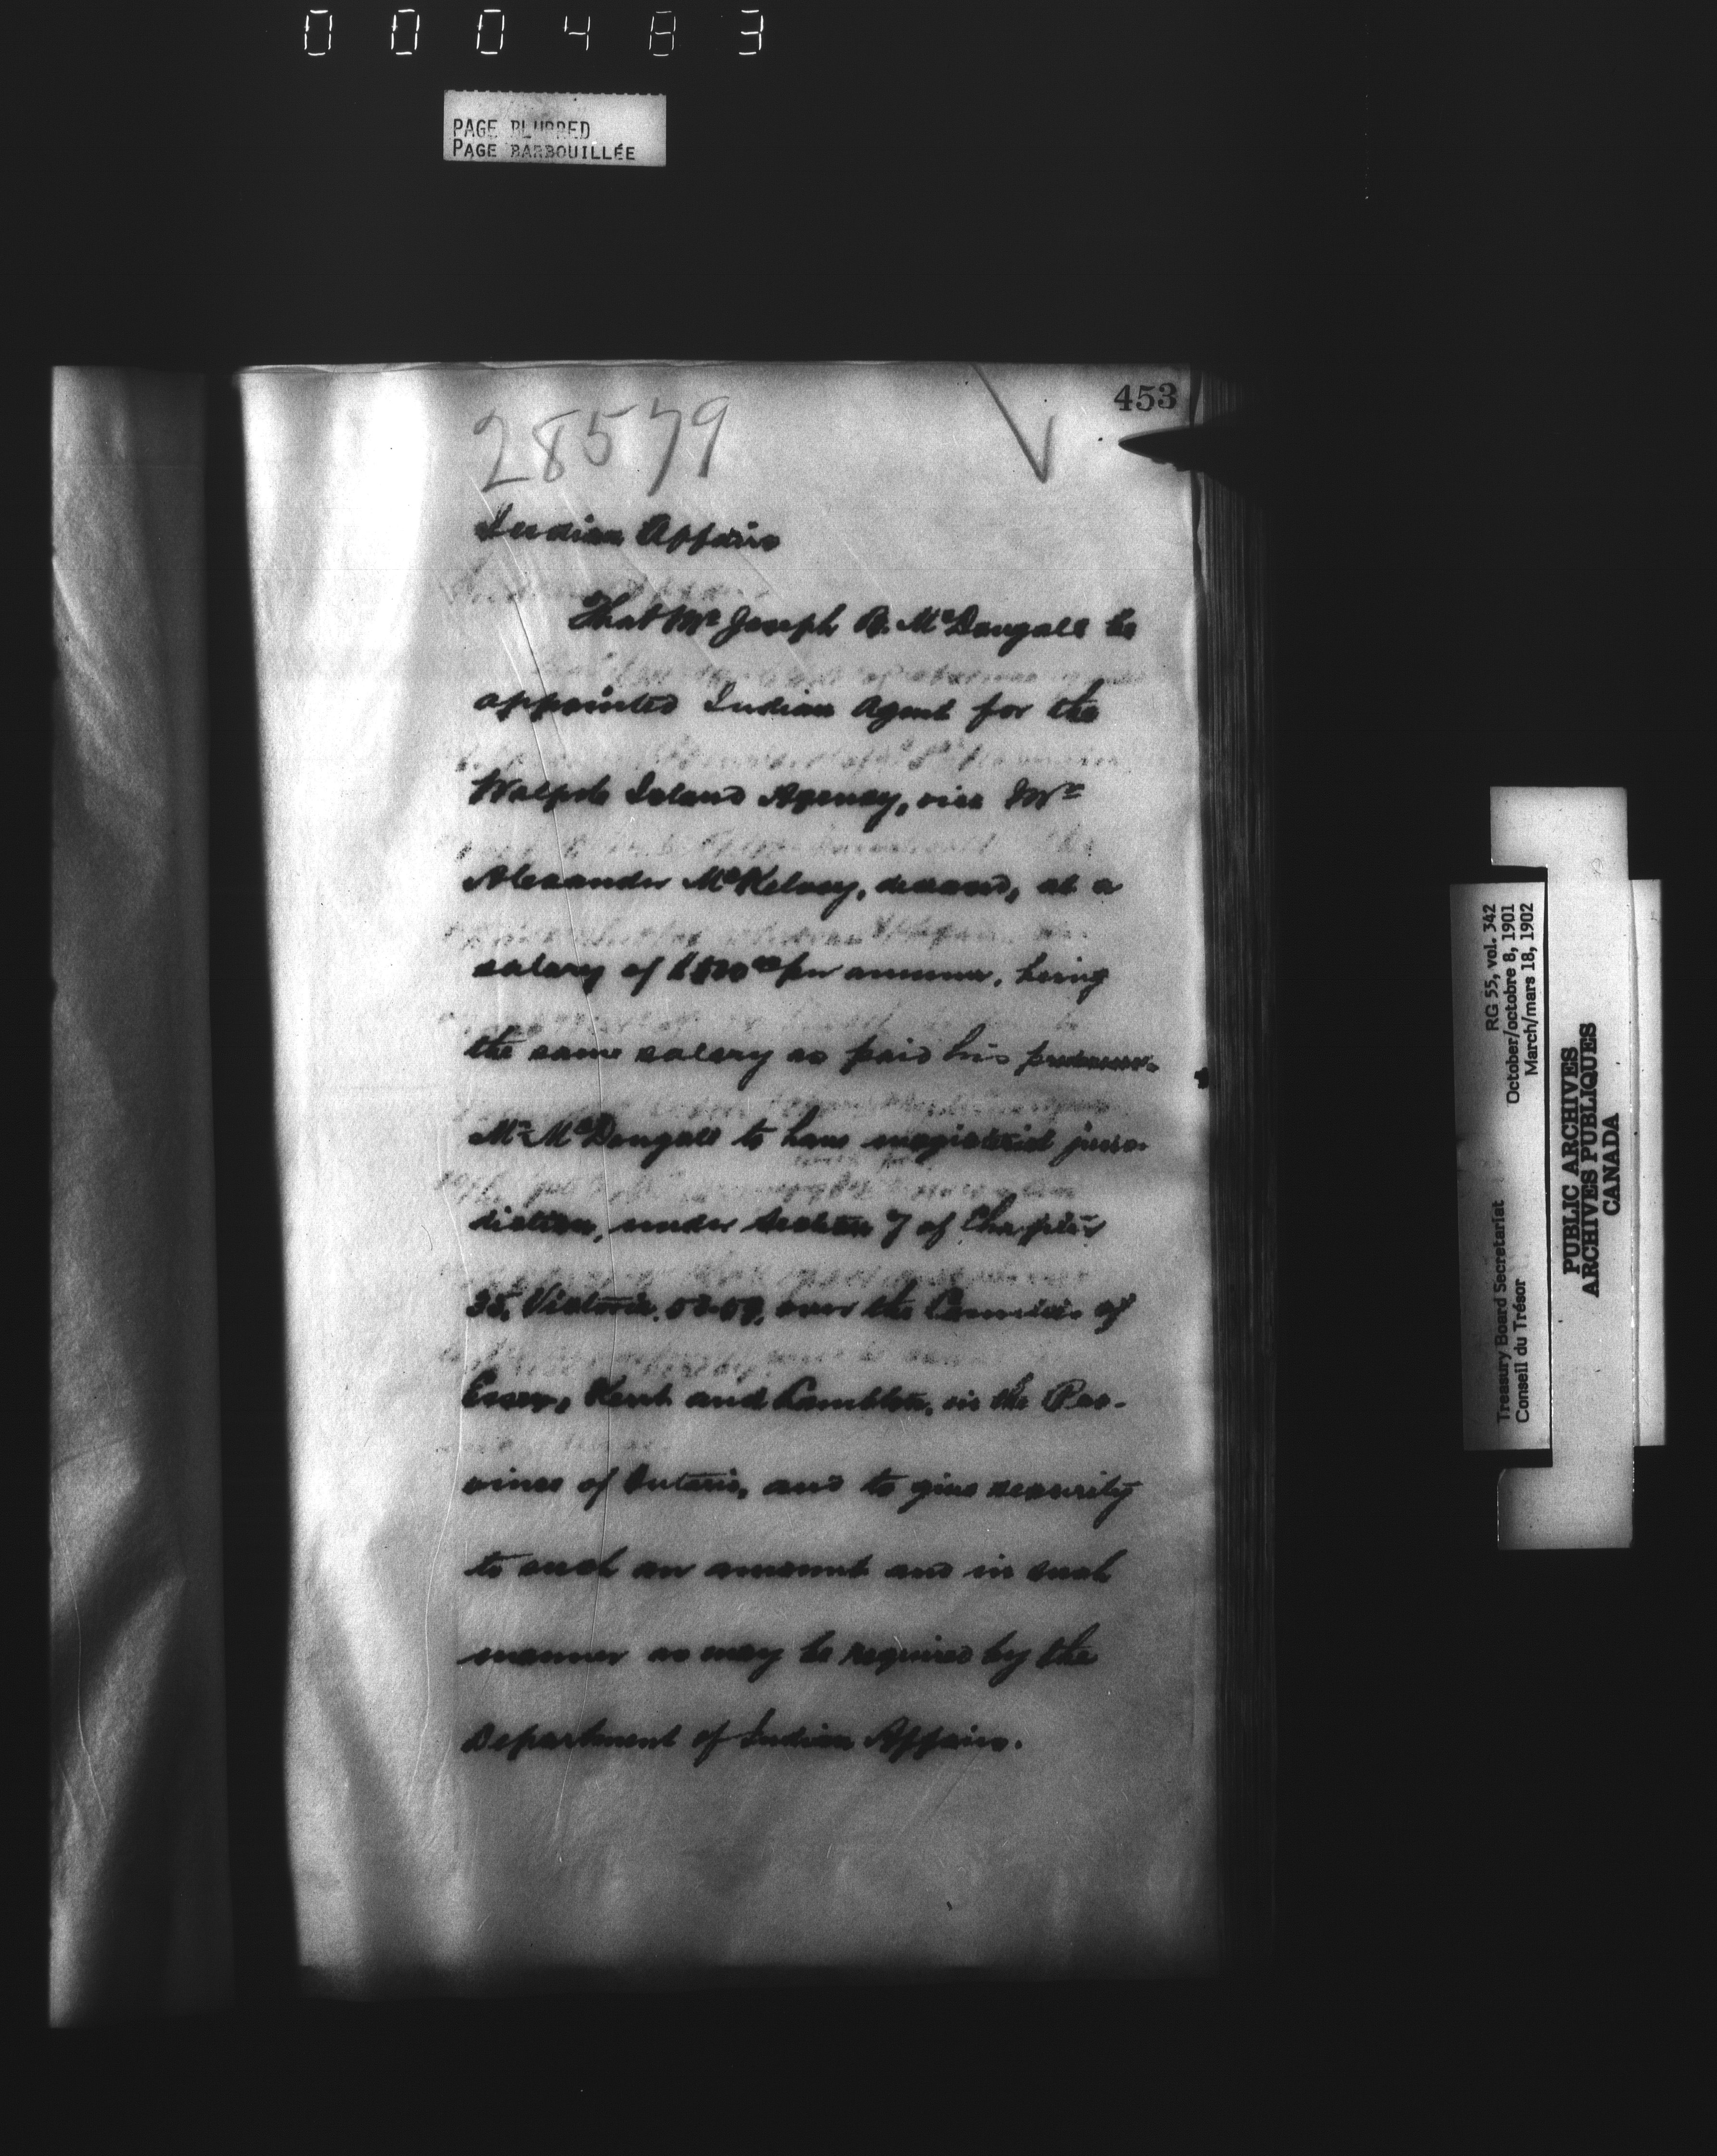 000483
PAGE BLURRED
PAGE BARBOUILLÉE
453
28579
Indian Affairs
That Mr Joseph B. McDougall be
appointed Indian Agent for the
Walpole Island Agency, vice Mr
Alexander McKelvey, deceased, at a
salary of per annum, being
the same salary as paid his predecessor.
Mr McDougall to have magisterial juris-
diction, under section 7 of Chapter
35, Victoria, 58-59, over the Counties of
Essex, Kent and Lambton, in the Pro-
vince of Ontario, and to give security
to such an amount and in such
manner as may be required by the
Department of Indian Affairs.
Treasury Board Secretariat RG 55, vol. 342
Conseil du Trésor October/octobre 8, 1901
March/mars 18, 1902
PUBLIC ARCHIVES
ARCHIVES PUBLIQUES
CANADA